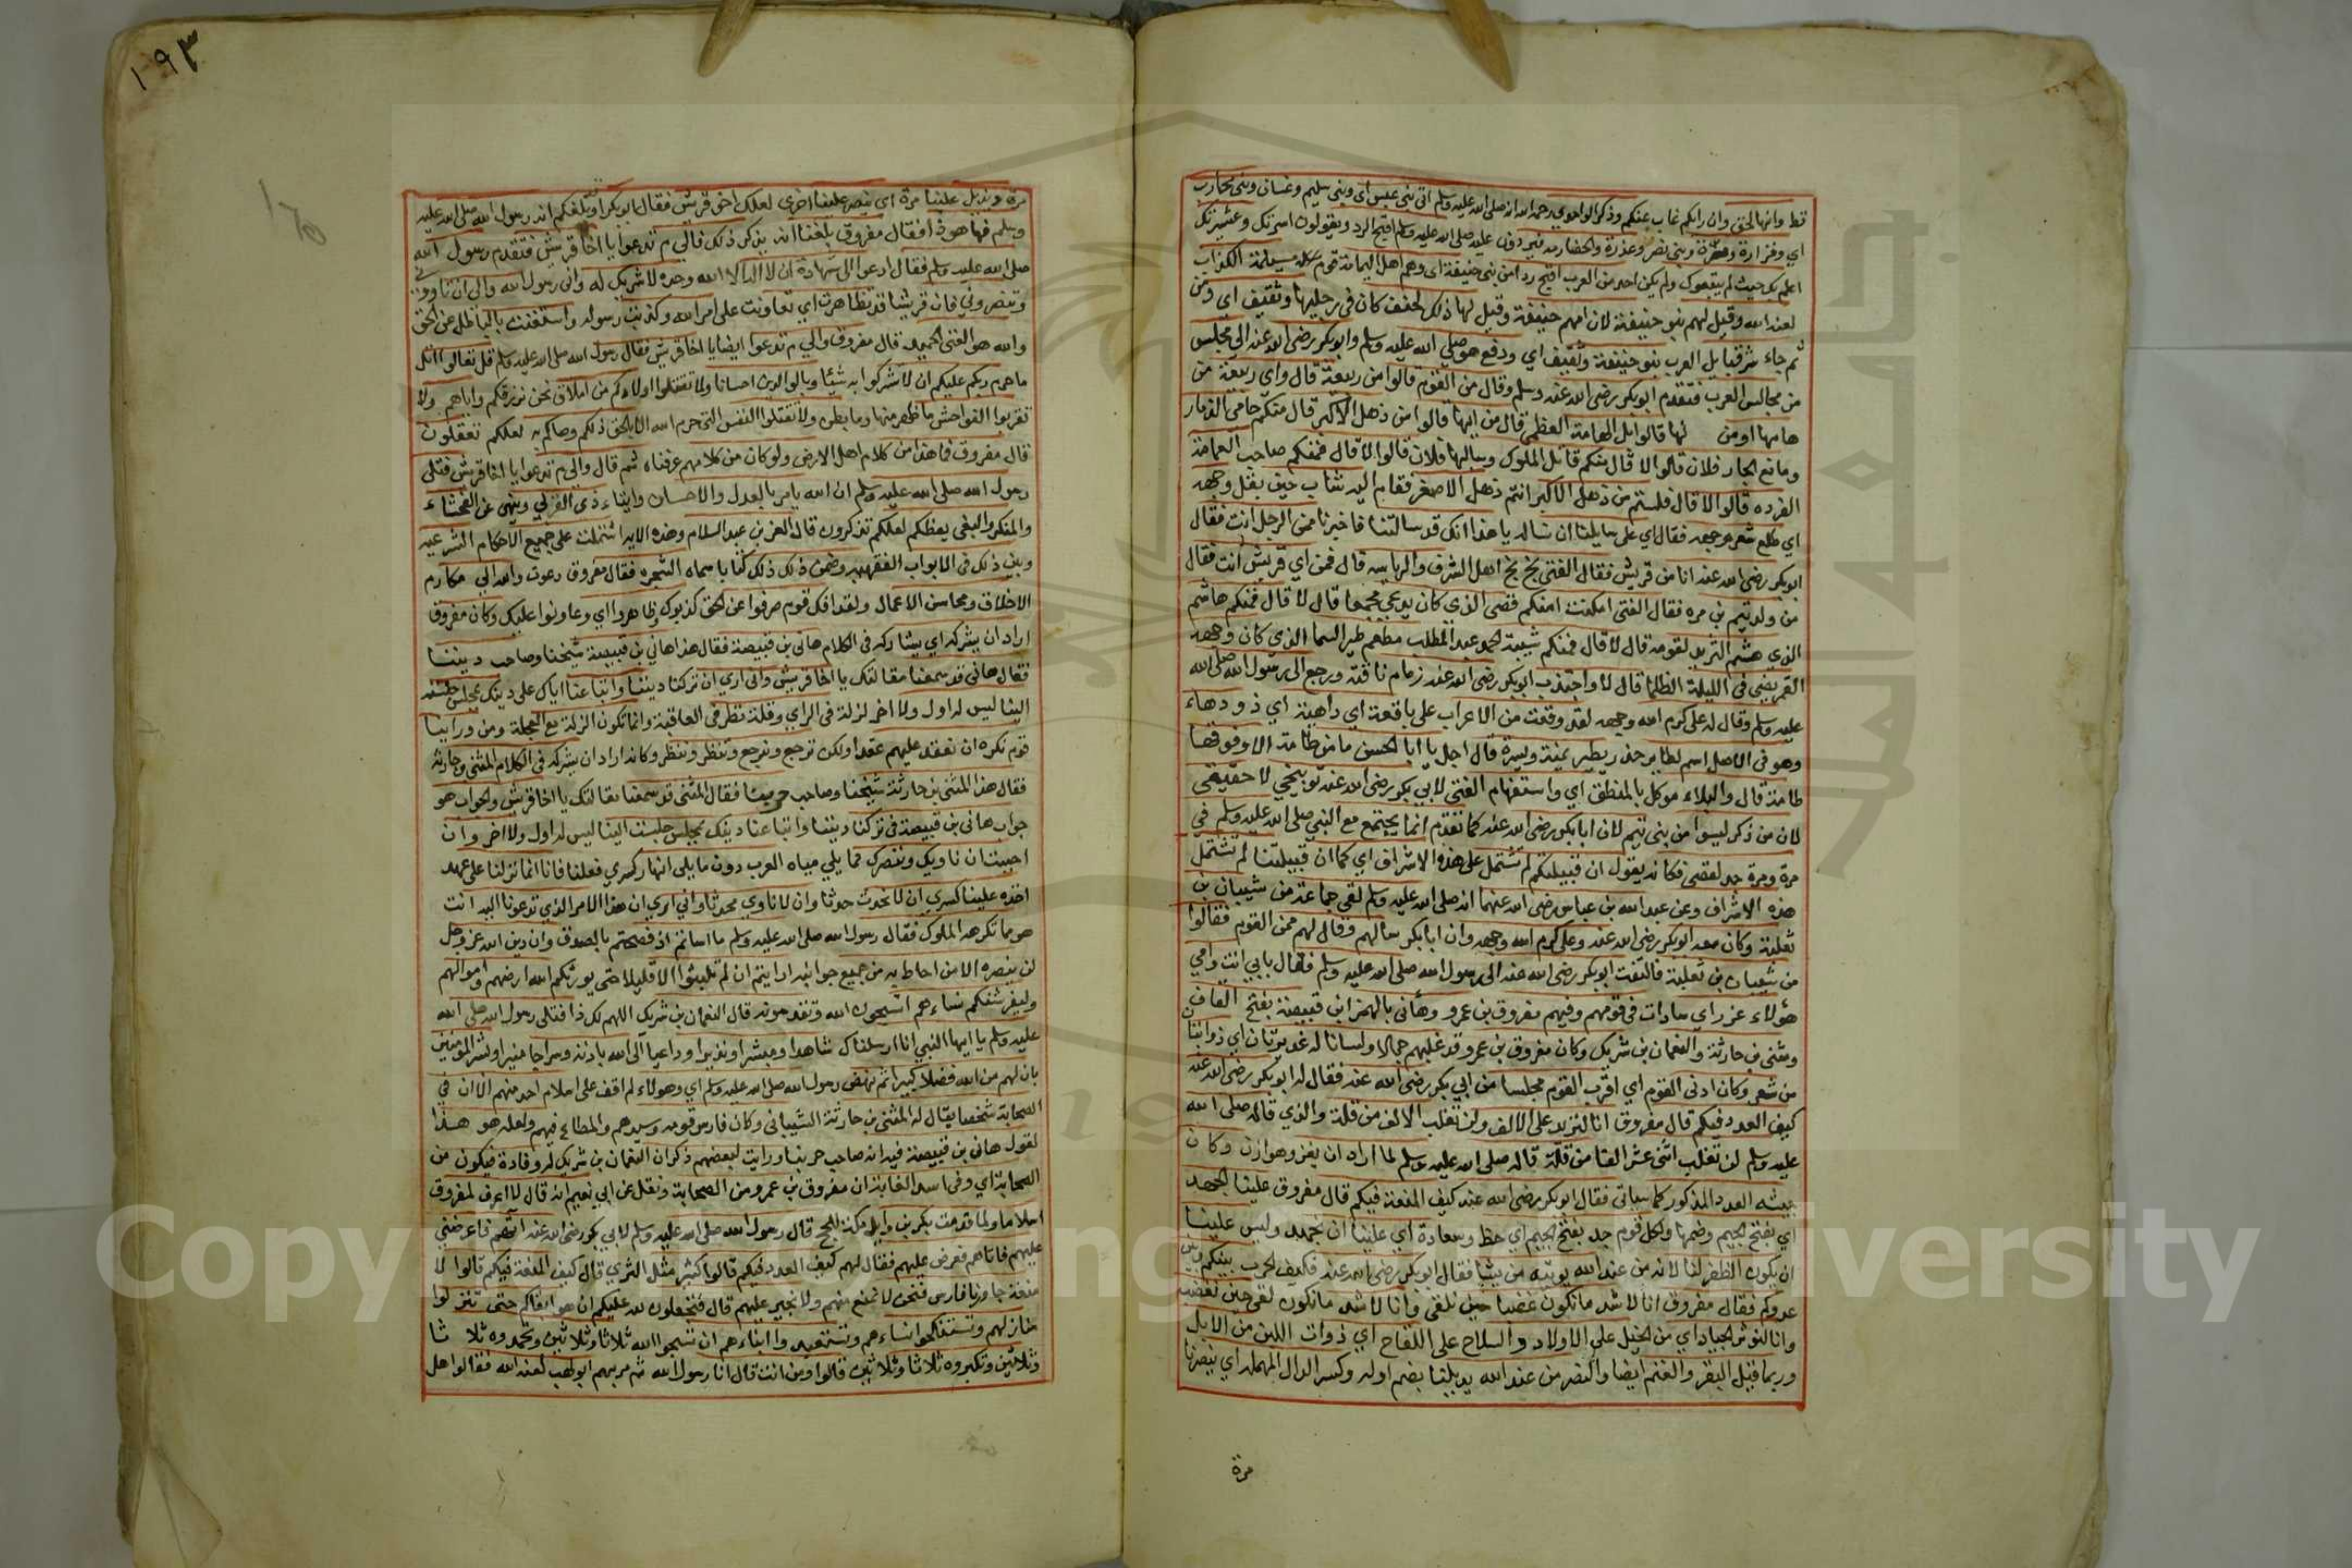 قط وانها لحق وان رايكم غاب عنكم وذكر الواقدي رحمه الله انه صلى الله عليه وسلم اتى بني عبس اي وبني سليم وغسان وبني محارب
اي وفزارة ومرة وبني نضر وعذرة والحضارمة فيردون عليه صلى الله عليه وسلم اقبح الرد ويقولون اسرتك وعشيرتك
اعلم بك حيث لم يتبعوك ولم يكن احد من العرب اقبح ردا من بني حنيفة اي وهم اهل اليمامة قوم مسيلمة الكذاب
لعنه الله وقيل لهم بنو حنيفة لان امهم حنيفة وقيل لها ذلك لحنف كان في رجليها وثقيف اي ومن
ثم جاء شر قبايل العرب بنو حنيفة وثقيف اي ودفع هو صلى الله عليه وسلم وابو بكر رضى الله عنه الى مجلس
من مجالس العرب فتقدم ابو بكر رضى الله عنه وسلم وقال من القوم قالوا من ربيعة قال واي ربيعة من
هامها او من لهازمها قالوا بل الهامة العظمى قال من ايها قالوا من ذهل الاكبر قال منكم حامي الذمار
ومانع الجار فلان قالوا لا قال منكم قاتل الملوك وسالبها فلان قالوا لا قال فمنكم صاحب العمامة
الفرده قالوا لا قال فلستم من ذهل الاكبر انتم ذهل الاصغر فقام اليه شاب حين بقل وجهه
اي طلع شعر وجهه فقال اي على سايلنا ان نساله يا هذا انك قد سالتنا فاخبرناك فمن الرجل انت فقال
ابو بكر رضى الله عنه انا من قريش فقال الفتى بخ بخ اهل الشرف والرياسه قال فمن اي قريش انت فقال
من ولد تيم بن مره فقال الفتى امكنت امنكم قصى الذي كان يدعى مجمعا قال لا قال فمنكم هاشم
الذي هشم الثريد لقومه قال لا قال فمنكم شيبة الحمد عبد المطلب مطعم طير السما الذي كان وجهه
القمر يضي في الليلة الظلما قال لا واجتذب ابو بكر رضى الله عنه زمام ناقته ورجع الى رسول الله صلى الله
عليه وسلم وقال له على كرم الله وجهه لقد وقعت من الاعراب على باقعة اي داهية اي ذو دهاء
وهو في الاصل اسم لطاير حذر يطير يمنة ويسرة قال اجل يا ابا الحسن ما من طامة الا وفوقها
طامة قال والبلاء موكل بالمنطق اي واستفهام الفتى لابي بكر رضى الله عنه توبيخي لا حقيقي
لان من ذكر ليسوا من بني تيم لان ابا بكر رضى الله عنه كما تقدم انما يجتمع مع النبي صلى الله عليه وسلم في
مرة ومرة جد لقصى فكانه يقول ان قبيلتكم لم تشتمل على هذه الاشراف اي كما ان قبيلتنا لم تشتمل
هذه الاشراف وعن عبد الله بن عباس رضى الله عنهما انه صلى الله عليه وسلم لقي جماعة من شيبان بن
ثعلبة وكان معه ابو بكر رضى الله عنه وعلى كرم الله وجهه وان ابا بكر سالهم وقال لهم ممن القوم فقالوا
من شيبان بن ثعلبة فالتفت ابو بكر رضى الله عنه الى رسول الله صلى الله عليه وسلم فقال بابي انت وامي
هؤلاء غرر اي سادات في قومهم وفيهم مفروق بن عمرو وهاني بالهمز ابن قبيصة بفتح القاف
ومثنى بن حارثة والنعمان بن شريك وكان مفروق بن عمرو قد غلبهم جمالا ولسانا له غديرتان اي ذوابتان
من شعر وكان ادنى القوم اي اقرب القوم مجلسا من ابي بكر رضى الله عنه فقال له ابو بكر رضى الله عنه
كيف العدد فيكم قال مفروق انا لنزيد على الالف ولن تغلب الالف من قلة والذي قاله صلى الله
عليه وسلم لن تغلب اثنى عشر الفا من قلة قاله صلى الله عليه وسلم لما اراد ان يغزو هوازن وكان
جيشه العدد المذكور كما سياتي فقال ابو بكر رضى الله عنه كيف المنعة فيكم قال مفروق علينا الجهد
اي بفتح الجيم وضمها ولكل قوم جد بفتح الجيم اي حظ وسعادة اي علينا ان نجهد وليس علينا
ان يكون الظفر لنا لانه من عند الله يوتيه من يشا فقال ابو بكر رضى الله عنه فكيف الحرب بينكم وبين
عدوكم فقال مفروق انا لاشد ما نكون غضبا حين نلقى وانا لاشد ما نكون لقى حين نغضب
وانا لنوثر الجياد اي من الخيل على الاولاد والسلاح على اللقاح اي ذوات اللبن من الابل
وربما قيل البقر والغنم ايضا والنصر من عند الله يديلنا بضم اوله وكسر الدال المهملة اي ينصرنا
مرة
١٩٣
مرة ويديل علينا مرة اي ينصر علينا اخرى لعلك اخو قريش فقال ابو بكر اوقد بلغكم انه رسول الله صلى الله عليه
وسلم فها هو ذا فقال مفروق بلغنا انه يذكر ذلك فالى م تدعوا يا اخا قريش فتقدم رسول الله
صلى الله عليه وسلم فقال ادعوا الى شهادة ان لا اله الا الله وحده لا شريك له واني رسول الله والى ان تاووني
وتنصروني فان قريشا قد تظاهرت اي تعاونت على امر الله وكذبت رسوله واستغنت بالباطل عن الحق
والله هو الغني الحميد قال مفروق والى م تدعوا ايضا يا اخا قريش فقال رسول الله صلى الله عليه وسلم قل تعالوا اتل
ما حرم ربكم عليكم ان لا تشركوا به شيئا وبالوالدين احسانا ولا تقتلوا اولادكم من املاق نحن نرزقكم واياهم ولا
تقربوا الفواحش ما ظهر منها وما بطن ولا تقتلوا النفس التي حرم الله الا بالحق ذلكم وصاكم به لعلكم تعقلون
قال مفروق ما هذا من كلام اهل الارض ولو كان من كلامهم عرفناه ثم قال والى م تدعوا يا اخا قريش فتلى
رسول الله صلى الله عليه وسلم ان الله يامر بالعدل والاحسان وايتاء ذي القربى وينهى عن الفحشاء
والمنكر والبغي يعظكم لعلكم تذكرون قال العز بن عبد السلام وهذه الاية اشتملت على جميع الاحكام الشرعيه
وبين ذلك في الابواب الفقهيه وضمن ذلك كتابا سماه الشجره فقال مفروق دعوت والله الى مكارم
الاخلاق ومحاسن الاعمال ولقد افك قوم صرفوا عن الحق كذبوك وظاهروا اي وعاونوا عليك وكان مفروق
اراد ان يشركه اي يشاركه في الكلام هاني بن قبيصة فقال هذا هاني بن قبيصة شيخنا وصاحب ديننا
فقال هاني قد سمعنا مقالتك يا اخا قريش واني اري ان تركنا ديننا واتباعنا اياك على دينك بمجلس جلسته
الينا ليس له اول ولا اخر لزلة في الراي وقلة نظر في العاقبة وانما تكون الزلة مع العجلة ومن وراينا
قوم نكره ان نعقد عليهم عقدا ولكن نرجع وترجع وننظر وتنظر وكانه اراد ان يشركه في الكلام المثنى بن حارثة
فقال هذا المثنى بن حارثة شيخنا وصاحب حربنا فقال المثنى قد سمعنا مقالتك يا اخا قريش والجواب هو
جواب هاني بن قبيصة في تركنا ديننا واتباعنا دينك بمجلس جلست الينا ليس له اول ولا اخر وان
احببت ان ناويك وننصرك مما يلي مياه العرب دون ما يلي انهار كسري فعلنا فانا انما نزلنا على عهد
اخذه علينا كسري ان لا نحدث حدثا وان لا ناوي محدثا واني اري ان هذا الامر الذي تدعونا اليه انت
هو مما تكرهه الملوك فقال رسول الله صلى الله عليه وسلم ما اساتم اذ فصحتم بالصدق وان دين الله عز وجل
لن ينصره الا من احاط به من جميع جوانبه ارايتم ان لم تلبثوا الا قليلا حتى يورثكم الله ارضهم واموالهم
وليفرشنكم نساءهم اتسبحون الله وتقدسونه قال النعمان بن شريك اللهم لك ذا فتلى رسول الله صلى الله
عليه وسلم يا ايها النبي انا ارسلناك شاهدا ومبشرا ونذيرا وداعيا الى الله باذنه وسراجا منيرا وبشر المومنين
بان لهم من الله فضلا كبيرا ثم نهض رسول الله صلى الله عليه وسلم اي وهولاء لم اقف على اسلام احد منهم الا ان في
الصحابة شخصا يقال له المثنى بن حارثة الشيباني وكان فارس قومه وسيدهم والمطاع فيهم ولعله هو هذا
لقول هاني بن قبيصة فيه انه صاحب حربنا ورايت لبعضهم ذكر ان النعمان بن شريك له وفادة فيكون من
الصحابة اي وفي اسد الغابة ان مفروق بن عمرو من الصحابة ونقل عن ابي نعيم انه قال لا اعرف لمفروق
اسلاما ولما قدمت بكر بن وايل مكة للحج قال رسول الله صلى الله عليه وسلم لابي بكر رضى الله عنه ائتهم فاعرضني
عليهم فاتاهم فعرض عليهم فقال لهم كيف العدد فيكم قالوا كثير مثل الثري قال كيف المنعة فيكم قالوا لا
منعة جاورنا فارس فنحن لا نمنع منهم ولا نجير عليهم قال فتجعلون لله عليكم ان هو ابقاكم حتى تنزلوا
منازلهم وتستنكحوا نساءهم وتستعبدوا ابناءهم ان تسبحوا الله ثلاثا وثلاثين وتحمدوه ثلاثا
وثلاثين وتكبروه ثلاثا وثلاثين قالوا ومن انت قال انا رسول الله ثم مر بهم ابو لهب لعنه الله فقالوا هل